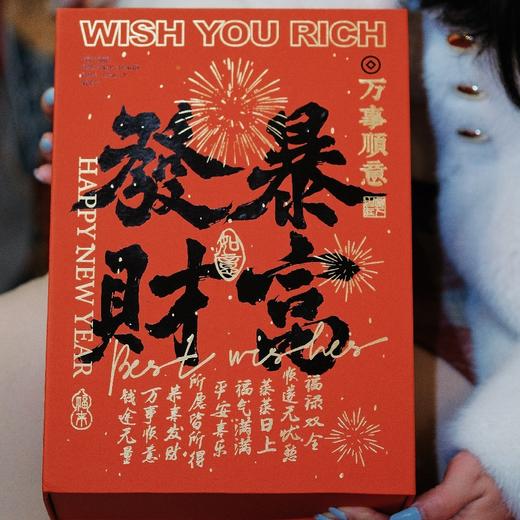 WISH YOU RICH
万事順意
暴富
發財
如意
HAPPY NEW YEAR
Best wishes
福禄双全
顺遂无忧愁
蒸蒸日上
福气满满
平安喜乐
所愿皆所得
恭喜发财
万事顺意
钱途无量